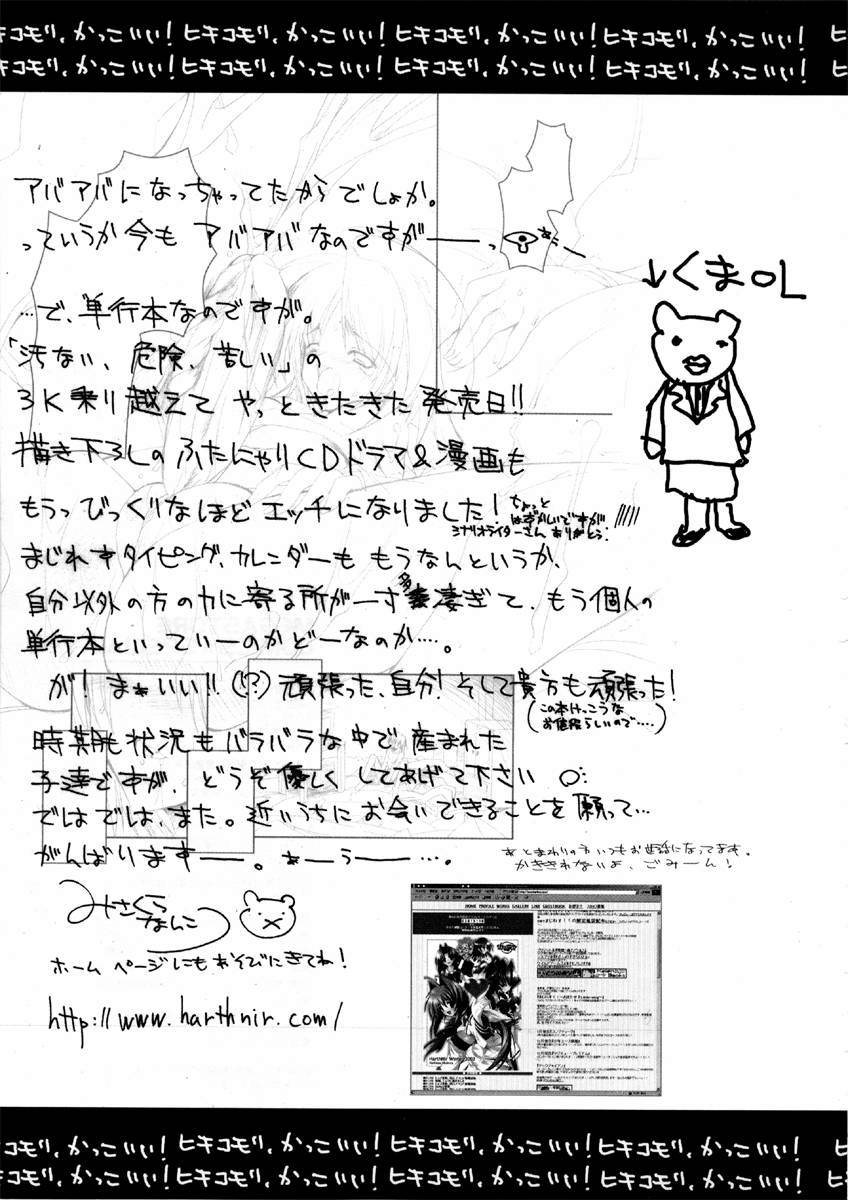 ヒキコモリ、かっこいい!ヒキコモリ、かっこいい!ヒキコモリ、かっこいい!ヒキコモリ、かっこいい!
ヒキコモリ、かっこいい!ヒキコモリ、かっこいい!ヒキコモリ、かっこいい!ヒキコモリ、かっこいい!
アバアバになっちゃってたからでしょか。
っていうか今も アバアバなのですがーーっ
↓くまOL
…で、単行本なのですが。
「汚ない、危険、苦しい」の
3K乗り越えて やっときたきた発売日!!
描き下ろしのふたにゃりCDドラマ&漫画も
もうっびっくりなほどエッチになりました!
ちょっと
はずかしいですが
シナリオライターさん ありがとう!
まじれすタイピング、カレンダーも もうなんというか、
自分以外の方の力に寄る所が一寸多凄ぎて、もう個人の
単行本といっていーのかどーなのか…。
が! まぁいい!!(!?)頑張った、自分! そして貴方も頑張った!
(この本けっこうな
お値段らしいので…)
時期も状況もバラバラな中で産まれた
子達ですが、どうぞ優しくしてあげて下さい
ではでは、また。近いうちにお会いできることを願って…
がんばりますーー。あーうー…。
あとまわりの方いつもお世話になってます。
かききれないよ、ごみーん!
みさくら
なんこつ
ホームページにもあそびにきてね!
http://www.harthnir.com/
HOME PROFILE WORKS GALLERY LINK GUESTBOOK
HarthNir Works 2002
ヒキコモリ、かっこいい!ヒキコモリ、かっこいい!ヒキコモリ、かっこいい!ヒキコモリ、かっこいい!
ヒキコモリ、かっこいい!ヒキコモリ、かっこいい!ヒキコモリ、かっこいい!ヒキコモリ、かっこいい!